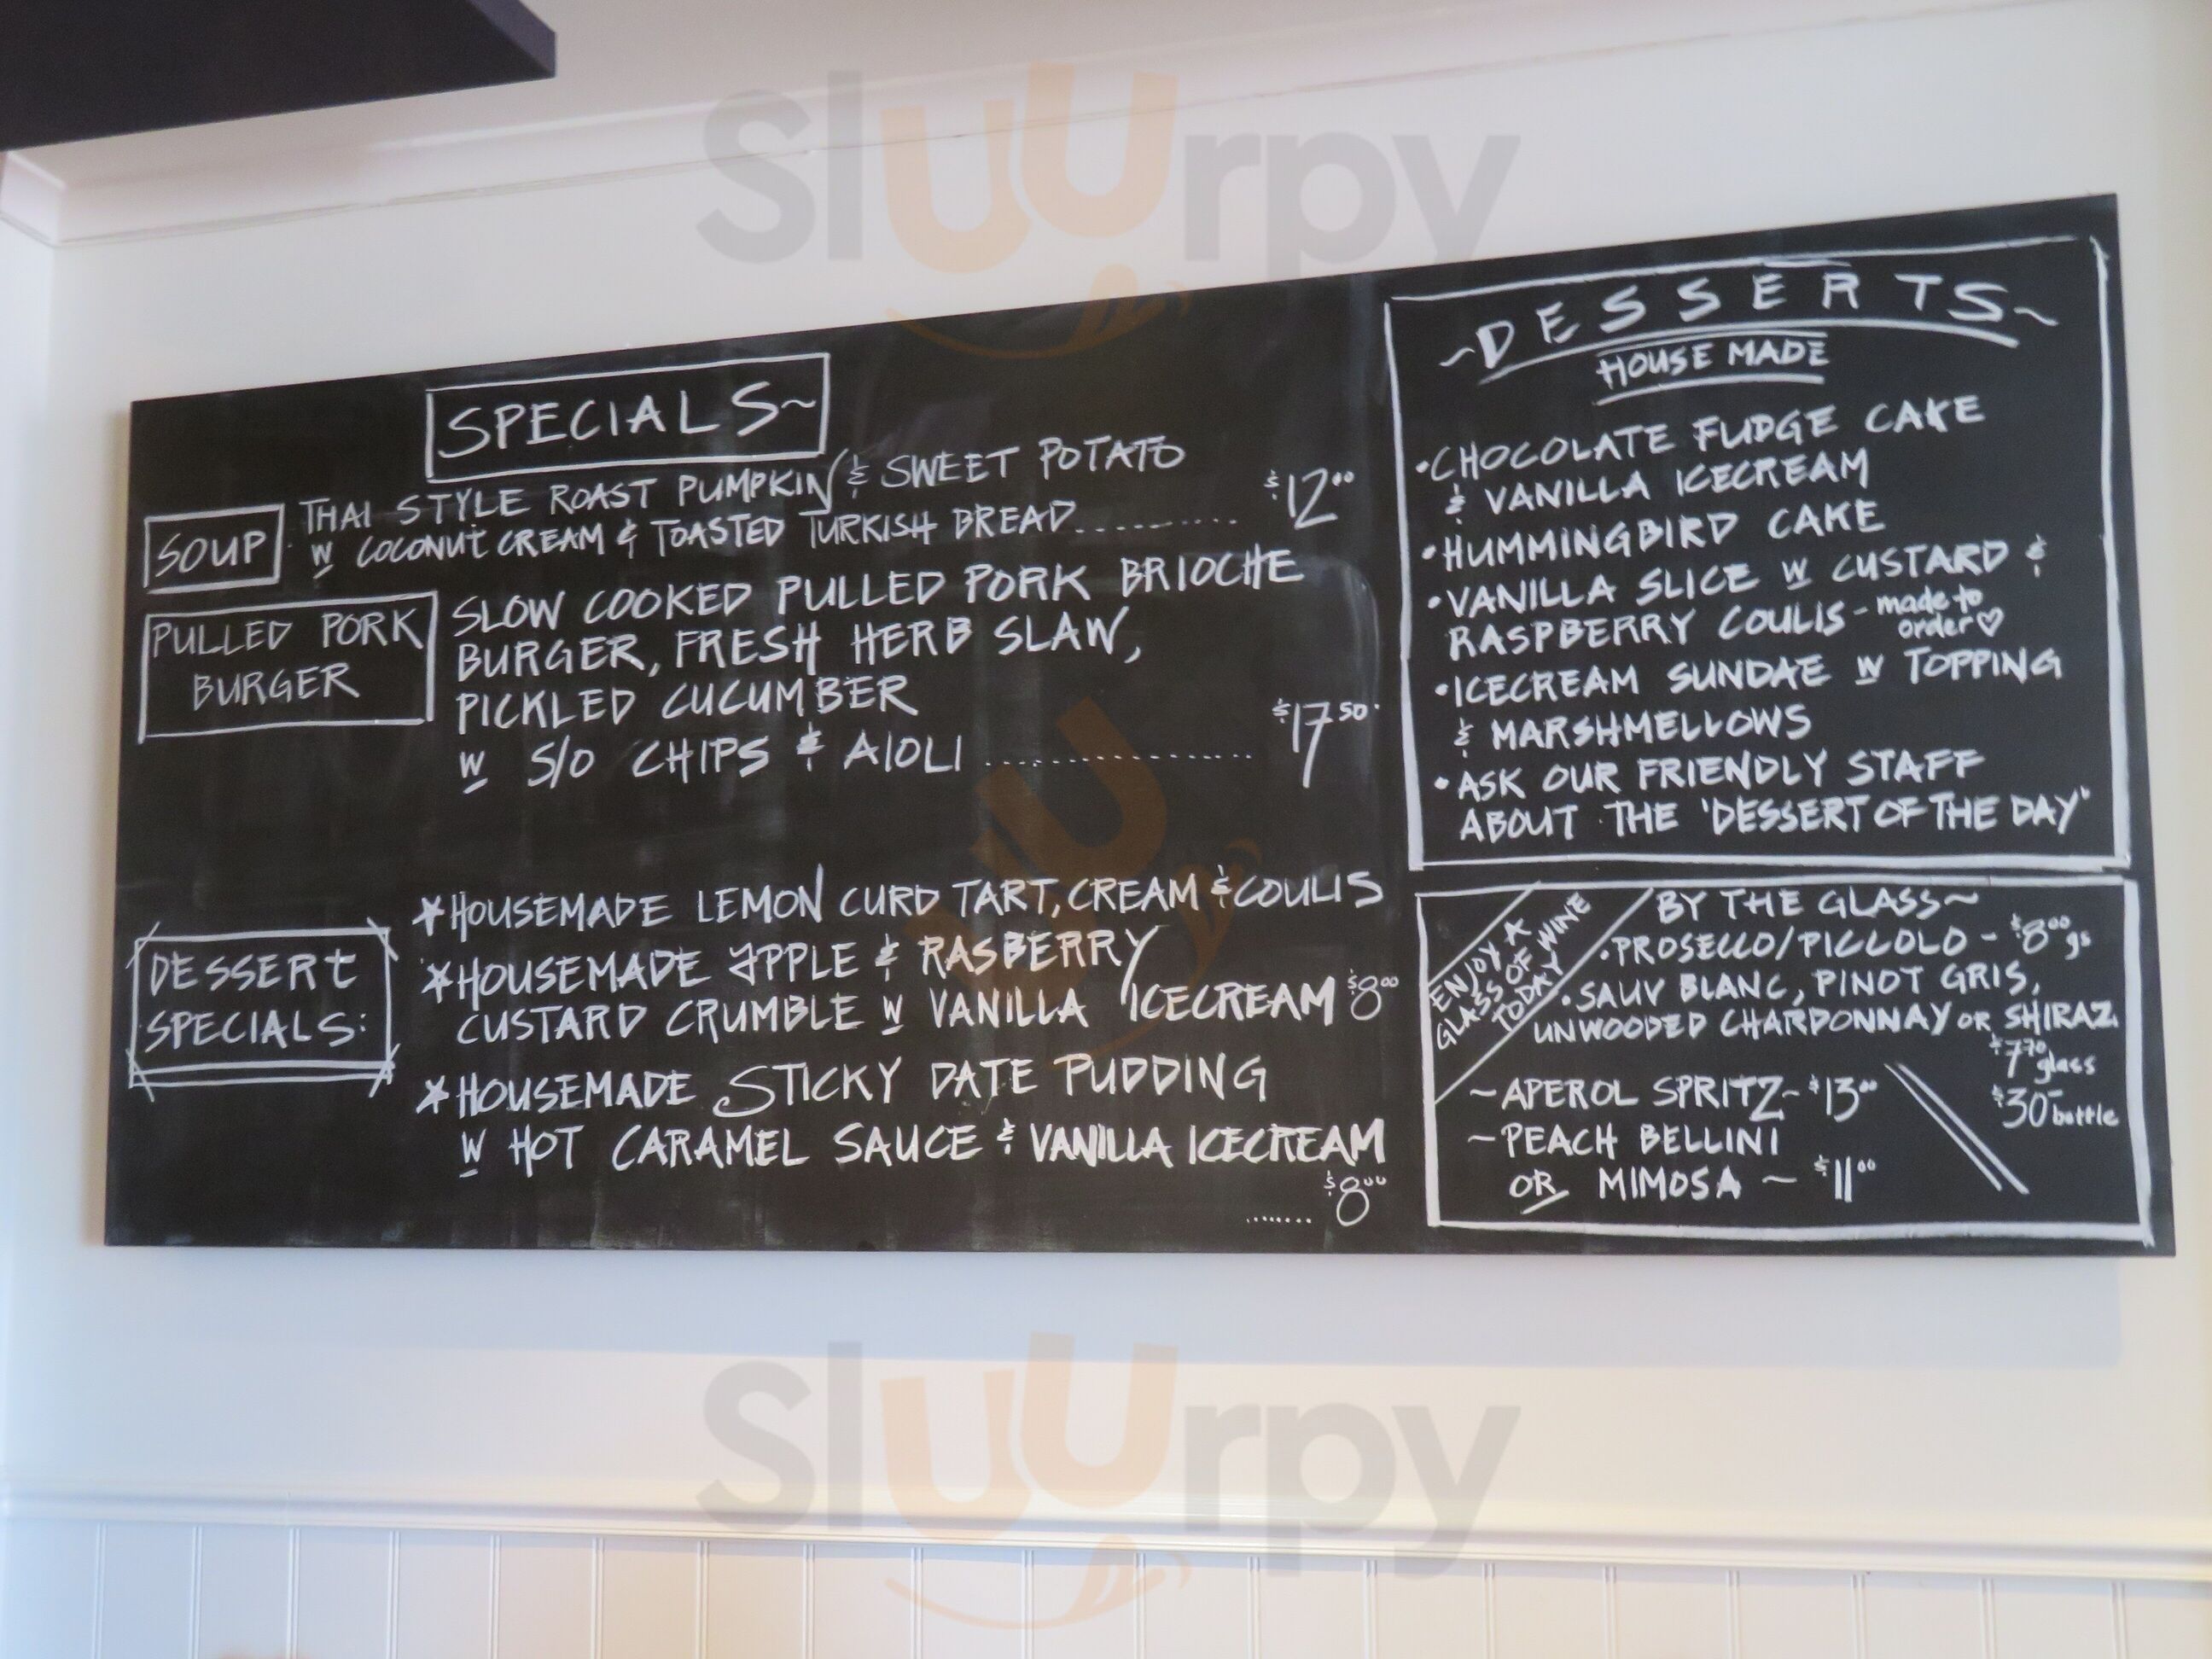 SPECIALS~
SOUP
THAI STYLE ROAST PUMPKIN & SWEET POTATO
W COCONUT CREAM & TOASTED TURKISH BREAD.......... $12.00
PULLED PORK
BURGER
SLOW COOKED PULLED PORK BRIOCHE
BURGER, FRESH HERB SLAW,
PICKLED CUCUMBER
W S/O CHIPS & AIOLI .............. $17.50
DESSERT
SPECIALS:
*HOUSEMADE LEMON CURD TART, CREAM & COULIS
*HOUSEMADE APPLE & RASBERRY
CUSTARD CRUMBLE W VANILLA ICECREAM $8.00
*HOUSEMADE STICKY DATE PUDDING
W HOT CARAMEL SAUCE & VANILLA ICECREAM
....... $8.00
~DESSERTS~
HOUSE MADE
•CHOCOLATE FUDGE CAKE
& VANILLA ICECREAM
•HUMMINGBIRD CAKE
•VANILLA SLICE W CUSTARD &
RASPBERRY COULIS - made to
order♡
•ICECREAM SUNDAE W TOPPING
& MARSHMELLOWS
•ASK OUR FRIENDLY STAFF
ABOUT THE 'DESSERT OF THE DAY'
ENJOY A
GLASS OF WINE
TODAY
BY THE GLASS~
•PROSECCO/PICCOLO - $8.00 gs
•SAUV BLANC, PINOT GRIS,
UNWOODED CHARDONNAY OR SHIRAZ.
$7.70 glass
$30- bottle
~APEROL SPRITZ~ $13.00
~PEACH BELLINI
OR MIMOSA ~ $11.00
Sluurpy
Sluurpy